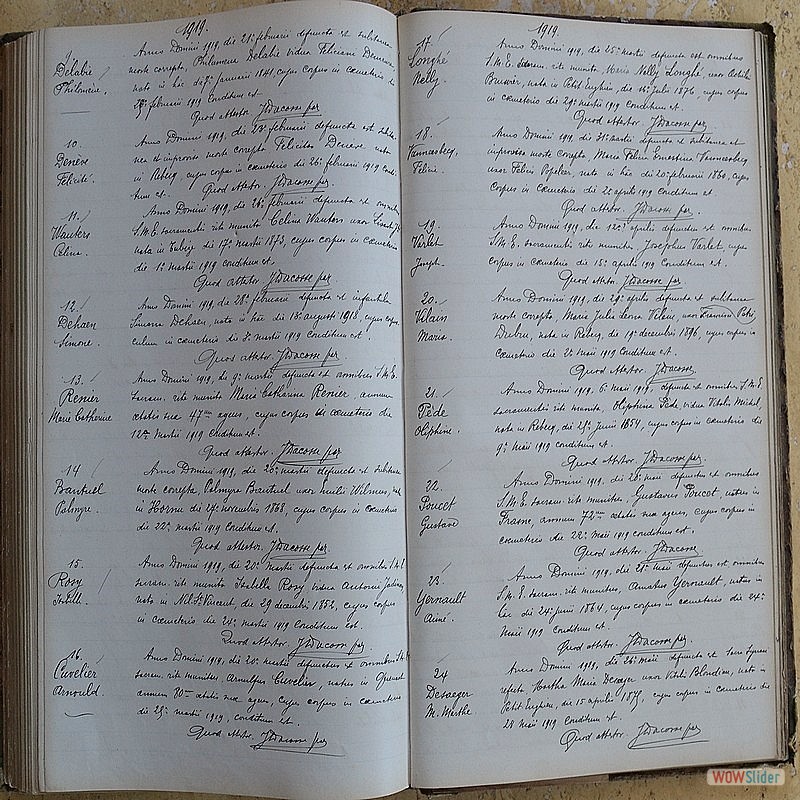 1919.
9.
Delabie
Philomène.
Anno Domini 1919, die 21ª februarii defuncta est subitanea
morte correpta, Philomena Delabie vidua Feliciani Deneve,
nata in hac die januarii 1841, cujus corpus in cœmeterio die
23ª februarii 1919 conditum est.
Quod attestor. J. Dacosse par.
10.
Denève
Félicité.
Anno Domini 1919, die 23ª februarii defuncta est subita-
nea et improvisa morte correpta Felicitas Deneve, nata
in Rebecq, cujus corpus in cœmeterio die 26ª februarii 1919 condi-
tum est.
Quod attestor. J. Dacosse par.
11.
Wauters
Célina.
Anno Domini 1919, die 26ª februarii defuncta est omnibus
S.M.E. sacramentis rite munita Celina Wauters uxor
nata in Tubize die 17ª martii 1873, cujus corpus in cœmeterio
die 1ª martii 1919 conditum est.
Quod attestor J. Dacosse par.
12.
Dehaen
Simone.
Anno Domini 1919, die 28ª februarii defuncta est infantula
Simona Dehaen, nata in hac die 13ª augusti 1918, cujus corpus-
culum in cœmeterio die 2ª martii 1919 conditum est.
Quod attestor. J. Dacosse par
13.
Renier
Marie Catherine
Anno Domini 1919, die 9ª martii defuncta est omnibus S.M.E.
sacram. rite munita Maria Catharina Renier, annum
ætatis suæ 47um agens, cujus corpus in cœmeterio die
12ª martii 1919 conditum est.
Quod attestor. J. Dacosse par
14
Bautuil
Palmyre.
Anno Domini 1919, die 20ª martii defuncta est subitanea
morte correpta Palmyra Bautuil uxor Emilii Wilmus, nata
in Horrue die 24ª novembris 1868, cujus corpus in cœmeterio
die 22ª martii 1919 conditum est.
Quod attestor. J. Dacosse par.
15.
Rosy
Isabelle.
Anno Domini 1919, die 20ª martii defuncta est omnibus S.M.E.
sacram. rite munita Isabella Rosy vidua Antonii
nata in Nil-St-Vincent, die 29 decembris 1852, cujus corpus
in cœmeterio die 24ª martii 1919 conditum est.
Quod attestor. J. Dacosse par.
16.
Cuvelier
Arnould.
Anno Domini 1919, die 20ª martii defunctus est omnibus S.M.E.
sacram. rite munitus, Arnulfus Cuvelier, natus in Quenast
annum 80um ætatis suæ agens, cujus corpus in cœmeterio
die 23ª martii 1919, conditum est.
Quod attestor. J. Dacosse par
1919.
17.
Longhé
Nelly.
Anno Domini 1919, die 25ª martii defuncta est omnibus
S.M.E. sacram. rite munita Maria Nelly Longhé, uxor
nata in Petit Enghien, die 16ª Julii 1876, cujus corpus
in cœmeterio die 29ª martii 1919 conditum est.
Quod attestor. J. Dacosse par.
18.
Vannaesbecq,
Féline.
Anno Domini 1919, die 31ª martii defuncta est subitanea et
improvisa morte correpta Maria Felina Ernestina Vannaesbecq
uxor Felicis Popelier, nata in hac die 20ª februarii 1860, cujus
corpus in cœmeterio die 2ª aprilis 1919 conditum est
Quod attestor. J. Dacosse par.
19.
Varlet
Joseph.
Anno Domini 1919, die 12ª aprilis defunctus est omnibus
S.M.E. sacramentis rite munitus Josephus Varlet, cujus
corpus in cœmeterio die 15ª aprilis 1919 conditum est.
Quod attestor. J. Dacosse par.
20.
Vilain
Maria.
Anno Domini 1919, die 29ª aprilis defuncta est subitanea
morte correpta, Maria Julia Leona uxor Francisci
nata in Rebecq, die 19ª decembris 1896, cujus corpus in
cœmeterio die 2ª maii 1919 conditum est.
Quod attestor J. Dacosse
21.
Pède
Olphine.
Anno Domini 1919, 6ª maii 1919, defuncta est omnibus S.M.E.
sacramentis rite munita, Pède, vidua Vitalis Michel,
nata in Rebecq, die 29ª Junii 1854, cujus corpus in cœmeterio die
9ª maii 1919 conditum est.
Quod attestor J. Dacosse par.
22.
Poucet
Gustave
Anno Domini 1919, die 20ª maii defunctus est omnibus
S.M.E. sacram. rite munitus, Gustavus Poucet, natus in
Frasne, annum 73um ætatis suæ agens, cujus corpus in
cœmeterio die 22ª maii 1919 conditum est.
Quod attestor J. Dacosse
23.
Yernault
Aimé.
Anno Domini 1919, die 21ª maii defunctus est omnibus
S.M.E. sacram. rite munitus, Amatus Yernault, natus in
hac die 24ª junii 1864, cujus corpus in cœmeterio die 24ª
maii 1919 conditum est.
Quod attestor. J. Dacosse par.
24
Desaeger
M. Marthe
Anno Domini 1919, die 26ª maii defuncta est
refecta Martha Maria Desaeger uxor Vitalis Blondeau, nata in
Petit Enghien, die 15 aprilis cujus corpus in cœmeterio die
28 maii 1919 conditum est.
Quod attestor J. Dacosse par
WOWSlider